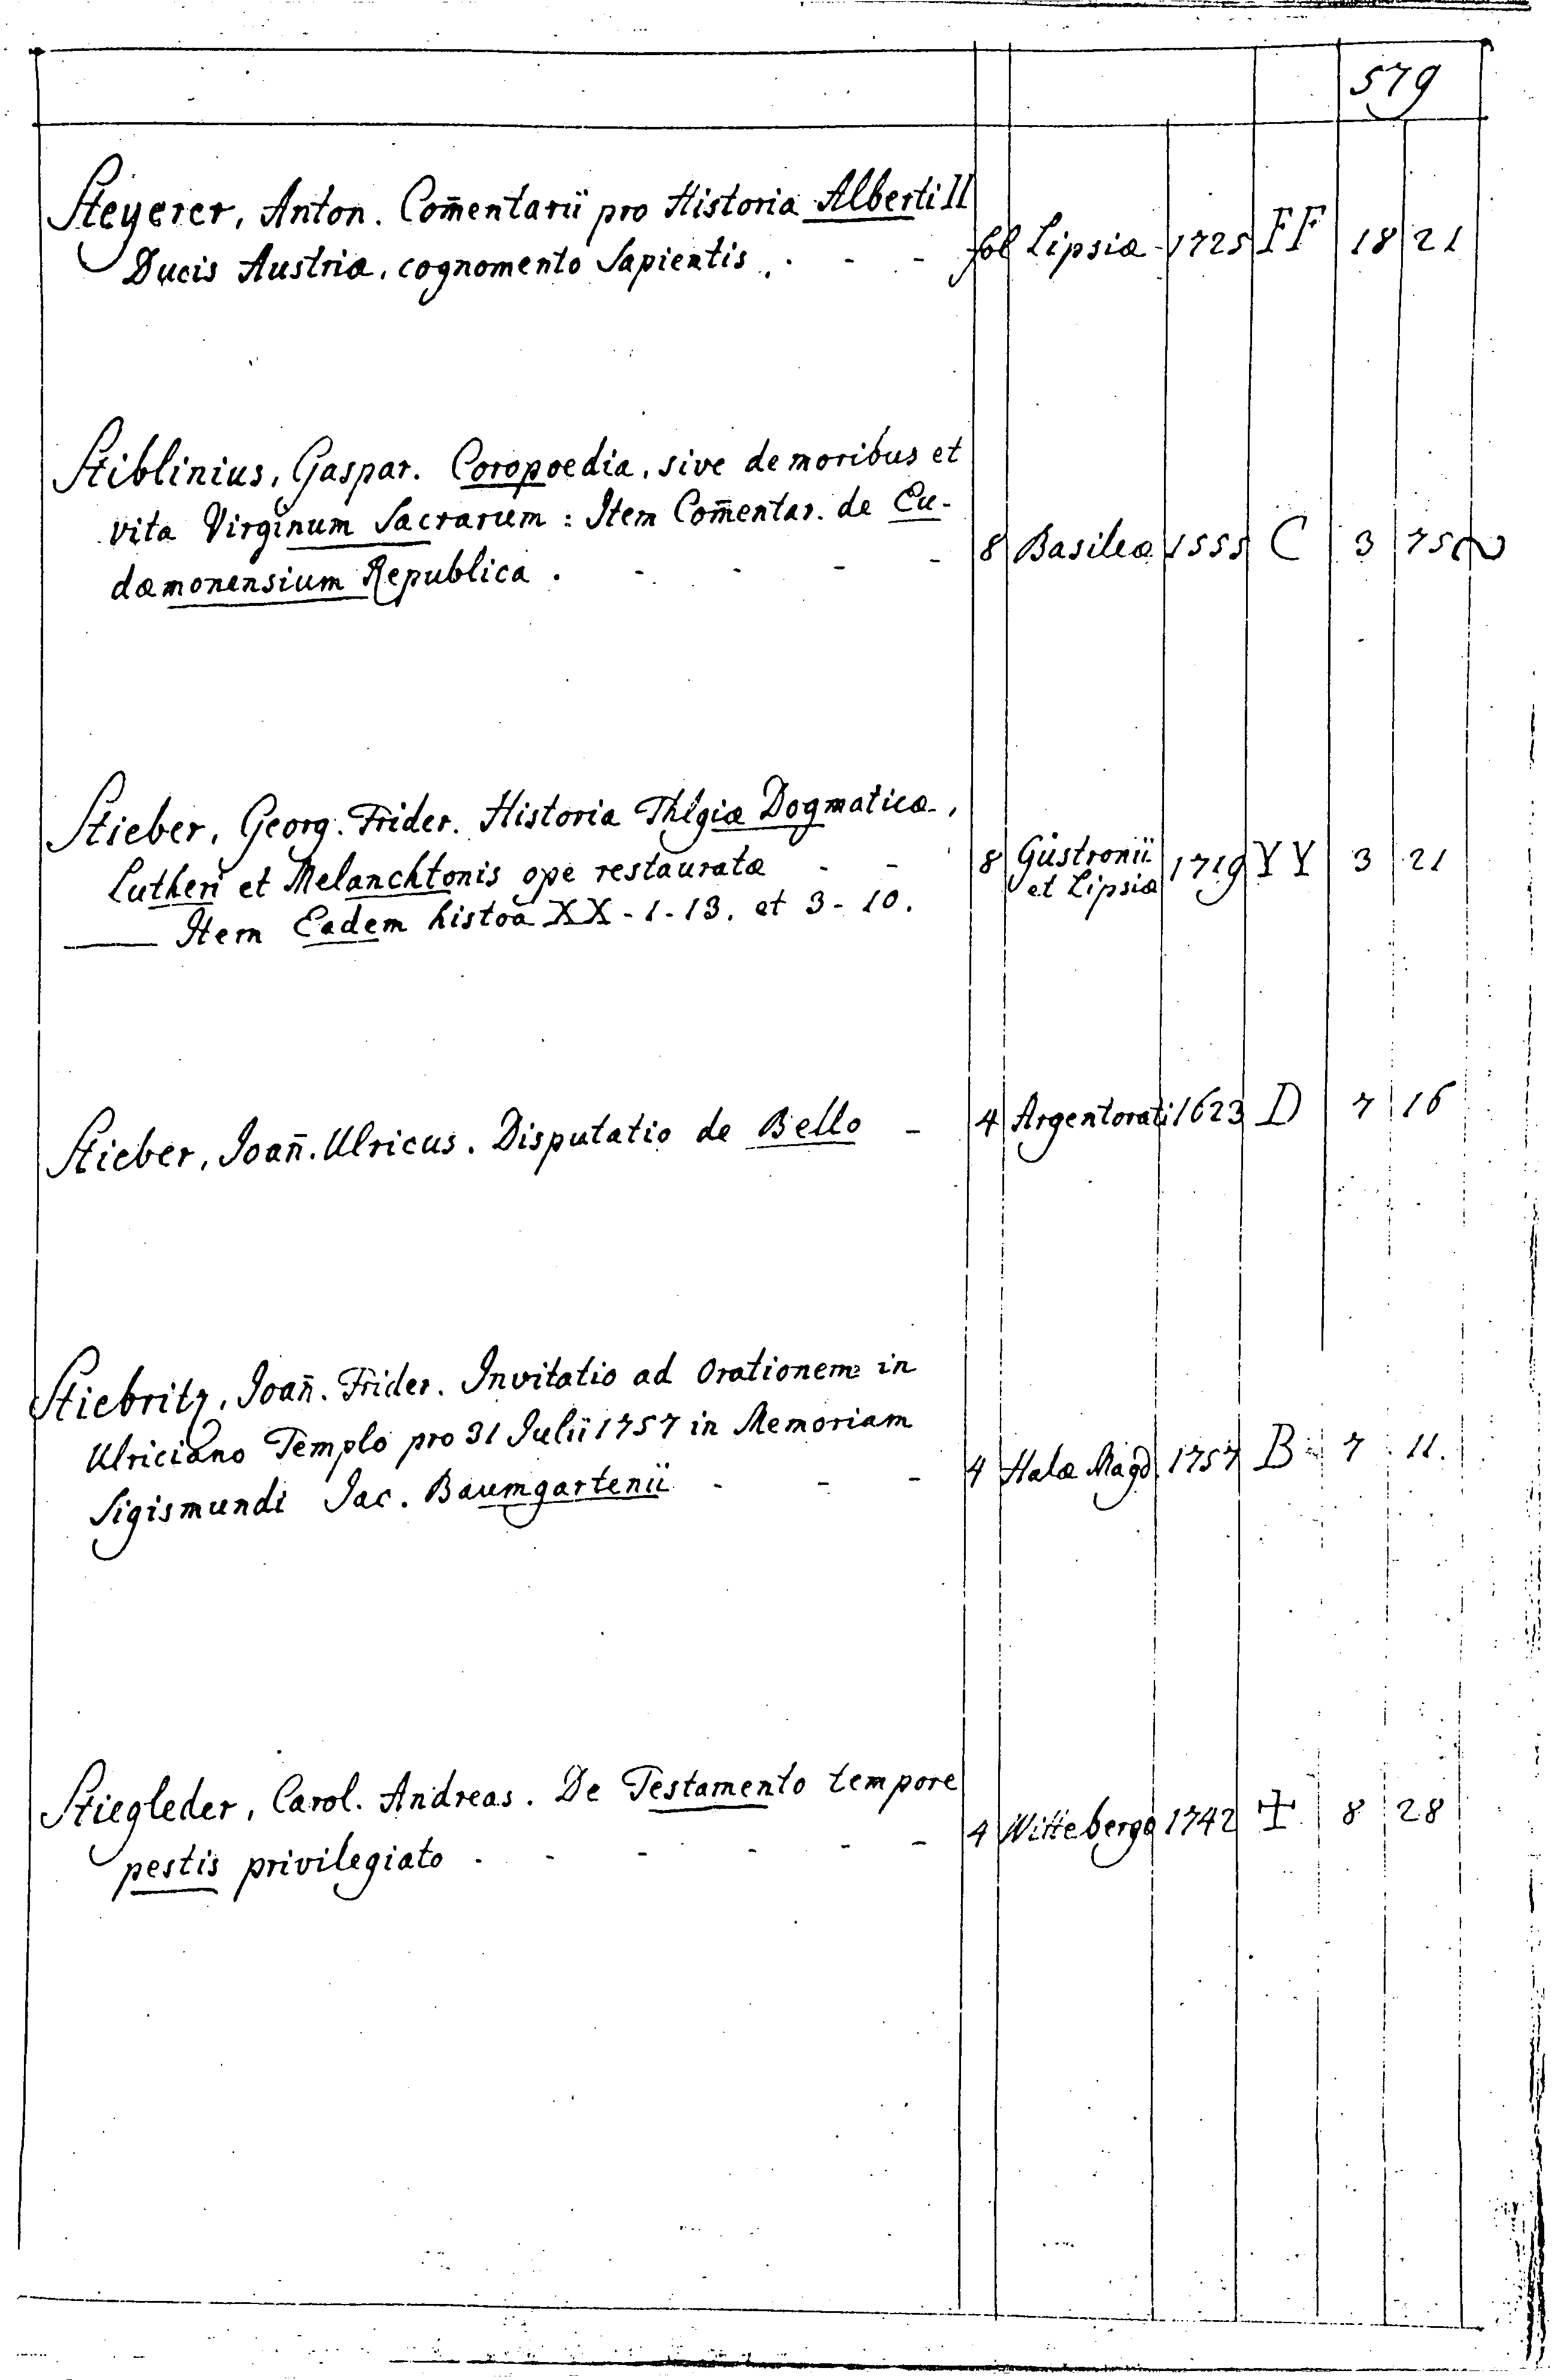 579
Steyerer, Anton. Com̄entarii pro Historia Alberti II
Ducis Austriæ, cognomento Sapientis . - - fol Lipsiæ 1725 FF 18 21
Stiblinius, Gaspar. Coropoedia, sive de moribus et
vita Virginum Sacrarum : Item Com̄entar. de Eu-
dæmonensium Republica . - - - - 8 Basileæ 1555 C 3 75
Stieber, Georg. Frider. Historia Thlgiæ Dogmaticæ,
Lutheri et Melanchtonis ope restauratæ - - 8 Güstronii et Lipsiæ 1719 YY 3 21
—— Item Eadem histoa XX - 1 - 13. et 3 - 10.
Stieber, Joan̄. Ulricus. Disputatio de Bello - 4 Argentorati 1623 D 7 16
Stiebritz, Joan̄. Frider. Invitatio ad Orationem in
Ulriciano Templo pro 31 Julii 1757 in Memoriam
Sigismundi Jac. Baumgartenii - - - 4 Halæ Magd 1757 B 7 11.
Stiegleder, Carol. Andreas. De Testamento tempore
pestis privilegiato - - - - - - 4 Wittebergæ 1742 ✠ 8 28